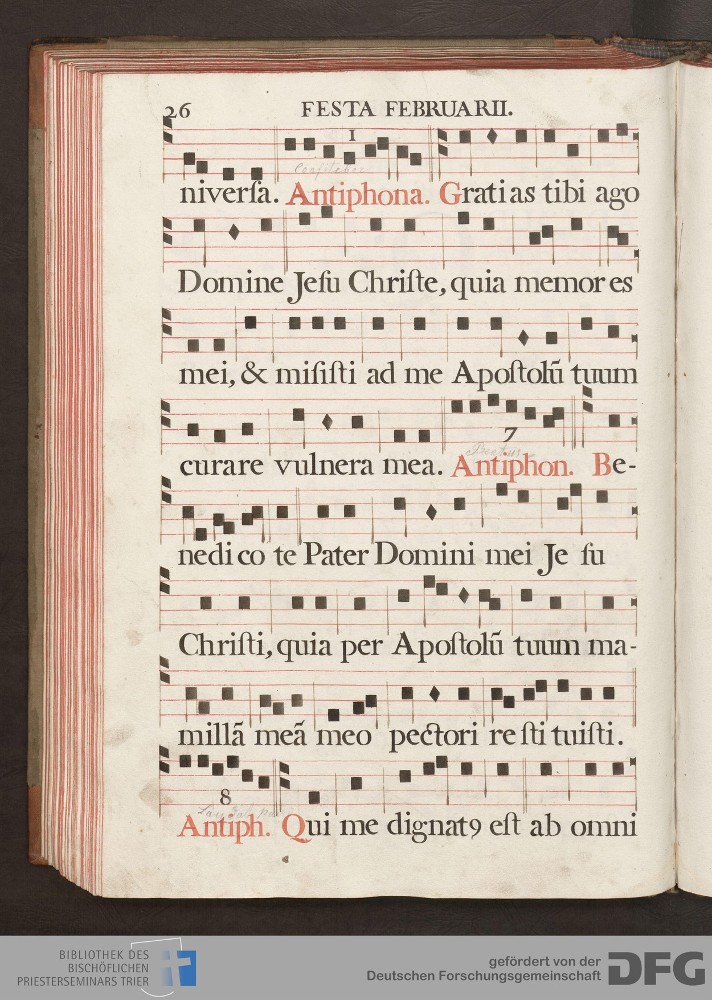 26 FESTA FEBRUARII.
1
niverſa. Antiphona. Gratias tibi ago
Domine Jeſu Chriſte, quia memor es
mei, & miſiſti ad me Apoſtolũ tuum
7
curare vulnera mea. Antiphon. Be-
nedico te Pater Domini mei Jeſu
Chriſti, quia per Apoſtolũ tuum ma-
millã meã meo pectori reſtituiſti.
8
Antiph. Qui me dignat9 eſt ab omni
BIBLIOTHEK DES
BISCHÖFLICHEN
PRIESTERSEMINARS TRIER
gefördert von der
Deutschen Forschungsgemeinschaft
DFG